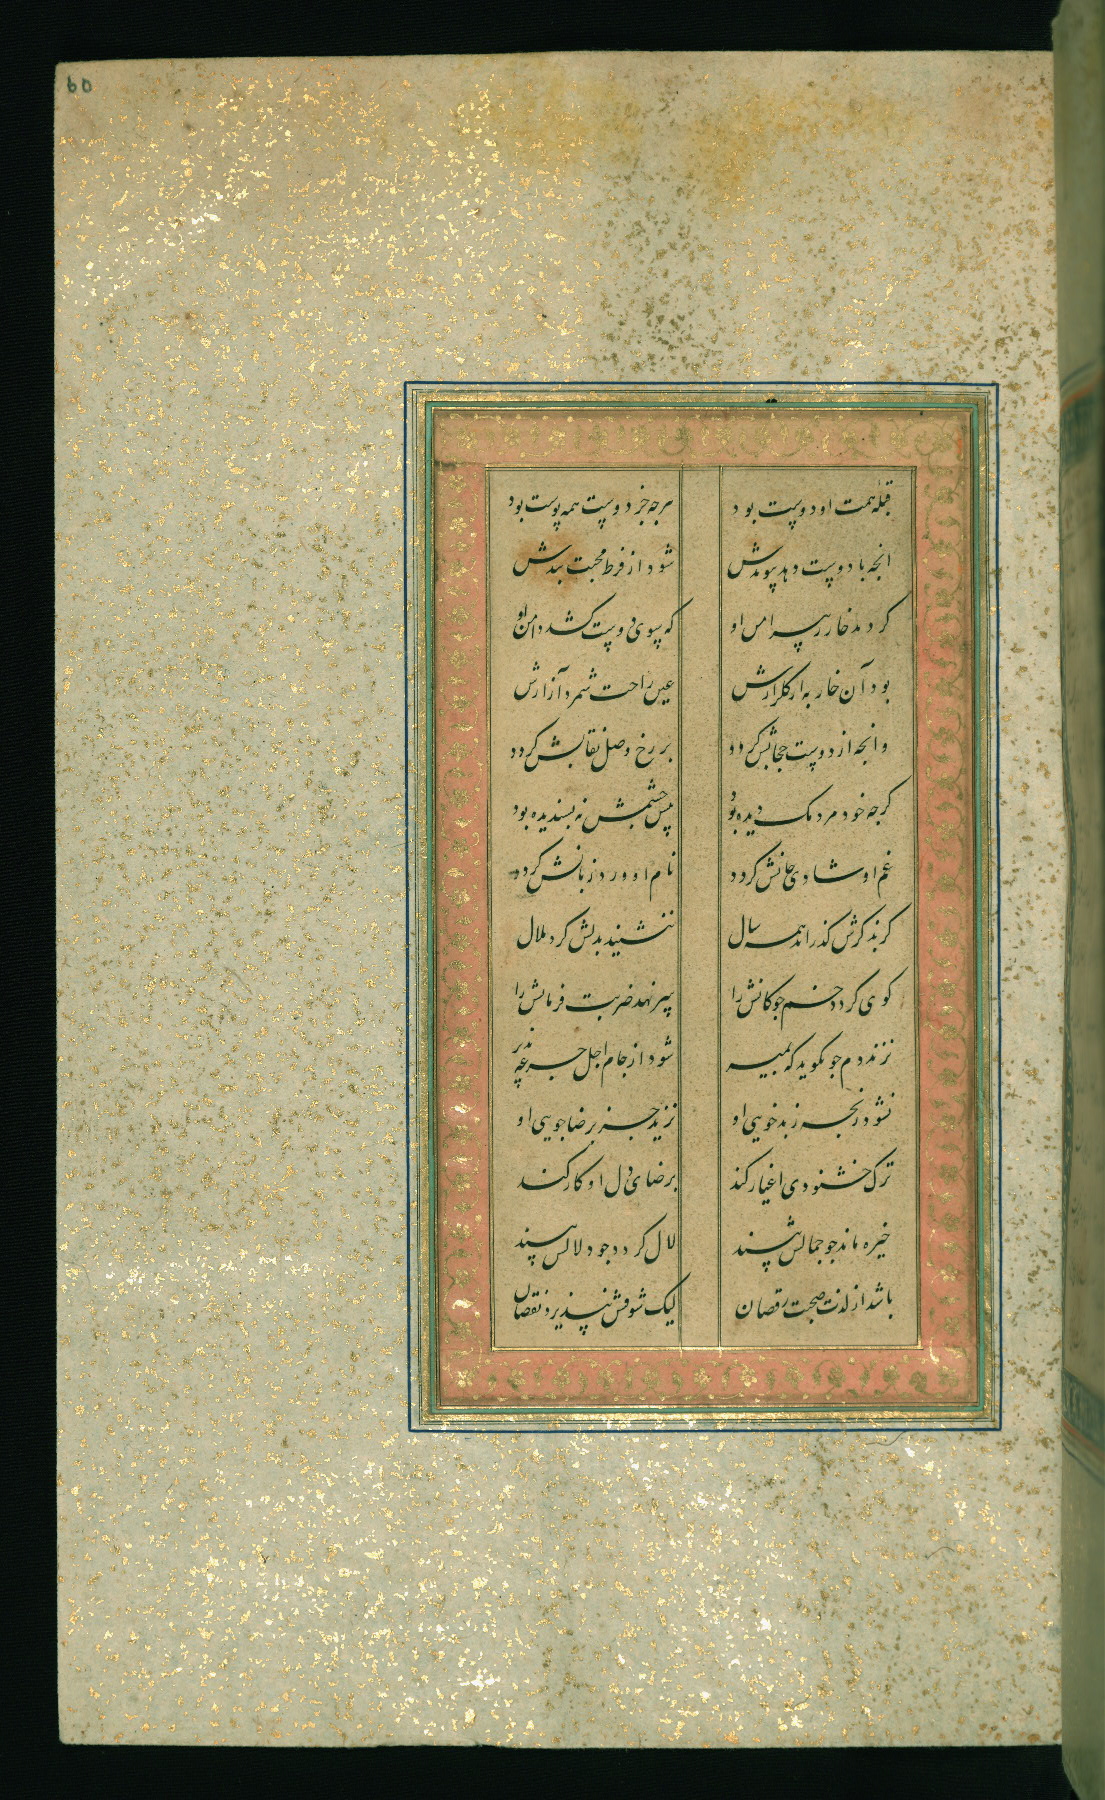 60
قبلهٔ همت او دوست بود هرجه جز دوست همه پوست بود
انجه با دوست دهد پیوندش شود از فرط محبت بندش
کر دمد خار ز پیرامن او که بسوی دوست کشد دامن او
بود آن خار به از کلزارش عین راحت شمرد آزارش
وانجه از دوست حجابش کردد بر رخ وصل نقابش کردد
کرجه خود مردمک دیده بود پیش چشمش نه بسندیده بود
غم او شادی جانش کردد نام او ورد زبانش کردد
کر بذکرش کذراند همه سال ننشیند بدلش کرد ملال
کوی کردد خم جوکانش را سر نهد ضربت فرمانش را
نزند دم جو بکوید که بمیر شود از جام اجل جرعه پذیر
نشود رنجه ز بدخویی او نزید جز برضاجویی او
ترک خشنودی اغیار کند برضای دل او کار کند
خیره ماند جو جمالش بیند لال کردد جو دلالش بیند
باشد از لذت صحبت رقصان لیک شوقش نپذیرد نقصان